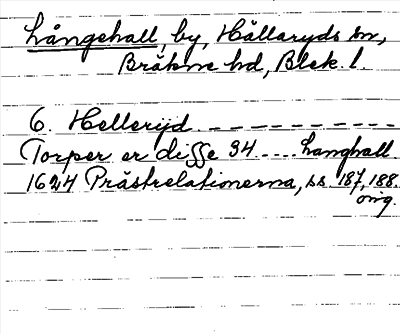 Långehall, by, Hällaryds sn,
Bräkne hd, Blek. l.
6. Hellerijd - - - - - - - - - -
Torper er disse 34 .... Langhall.
1624 Prästrelationerna, ss. 187, 188.
omg.